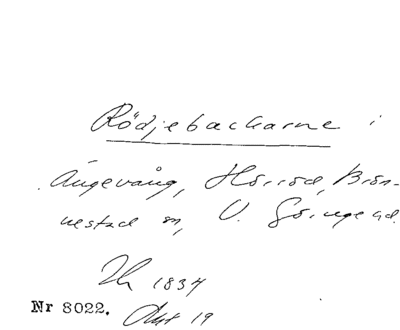 Rödjebackarne i
Ängevång, Hörröd, Brön-
nestad sn, V. Göinge hd.
Lh 1834
Nr 8022. Akt 19